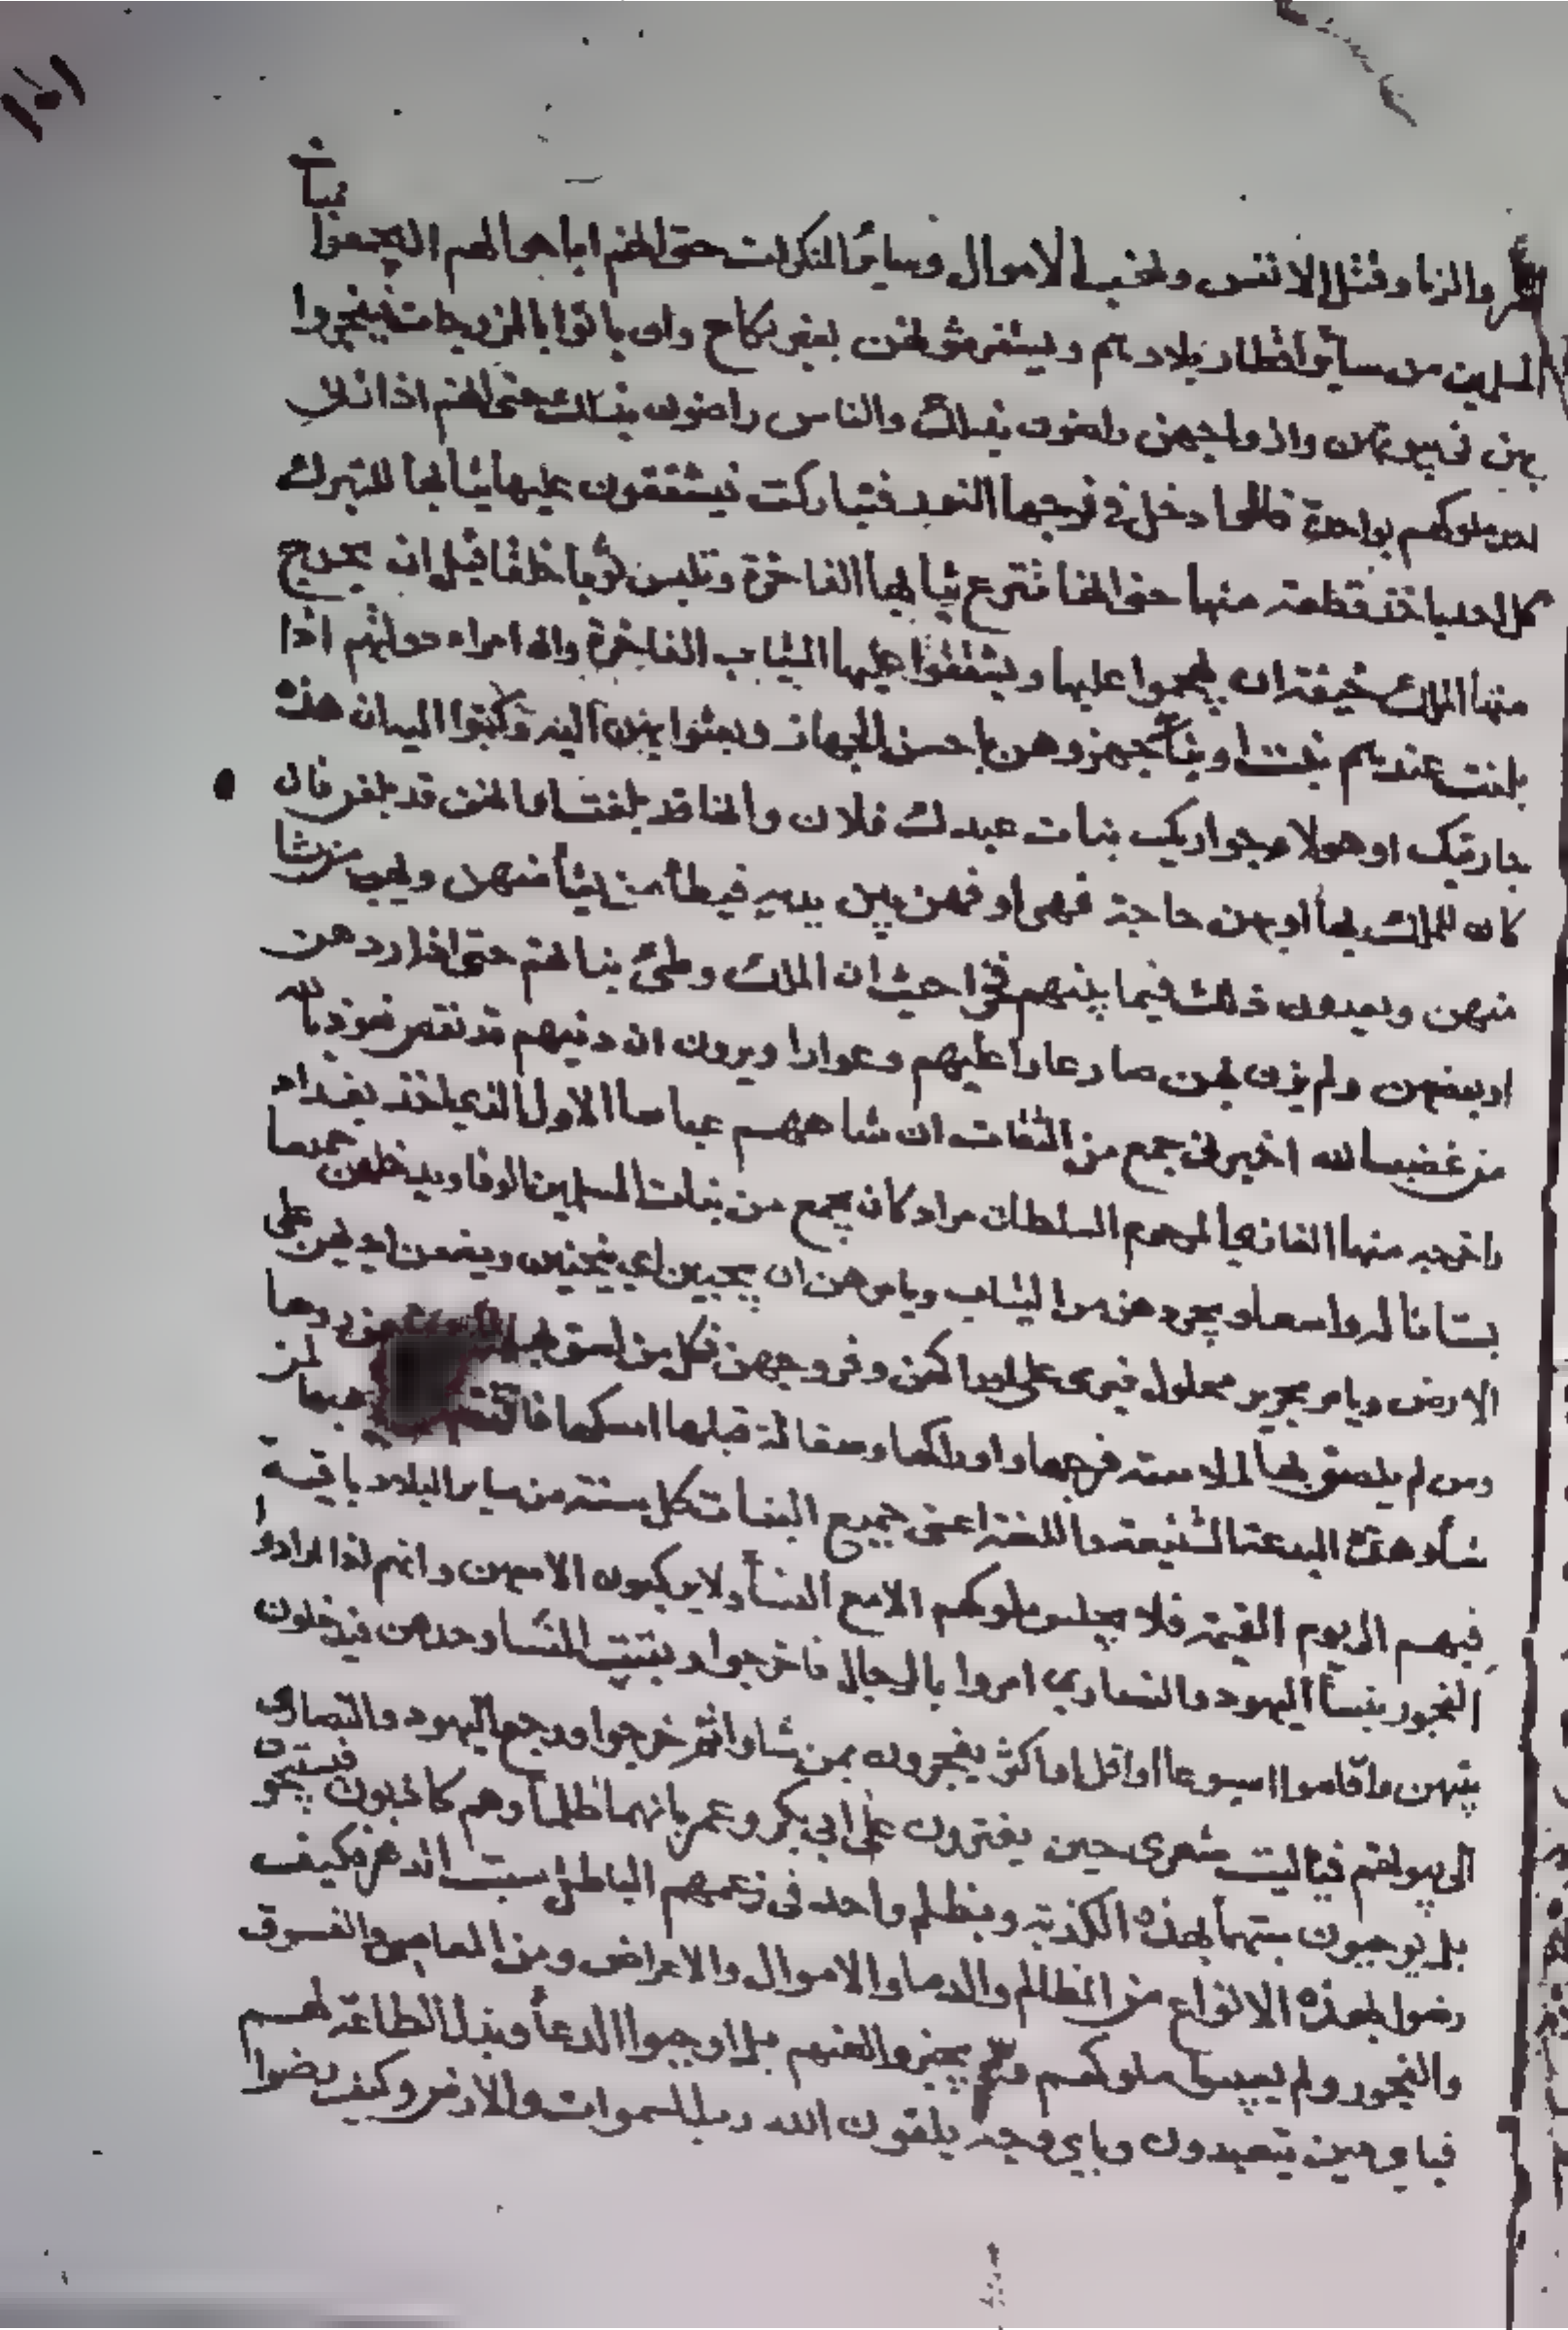 ١٥١
والزنا وقتل الانفس ونهب الاموال وساير المنكرات حتى انهم اباحوا لهم ان يجمعوا بنات
المسلمين من ساير اقطار بلادهم ويستفرشونهن بغير نكاح وان ياتوا بالمزوجات فيفجروا
بهن في بيوتهن وازواجهن راضون بذلك والناس راضون بذلك حتى انهم اذا زنى
احد ملوكهم بواحدة قالوا دخل في فرجها النور فتباركت فيشققون عليها ثيابها للتبرك
كل احد ياخذ قطعة منها حتى انها تنزع ثيابها الفاخرة وتلبس ثوبا خلقا قبل ان يخرج
منها الملك خيفة ان يهجموا عليها ويشققوا عليها الثياب الفاخرة وان امراء دولتهم اذا
بلغت عندهم بنت او بنات جهزوهن باحسن الجهاز وبعثوا بهن اليه وكتبوا اليه ان هذه
جاريتك او هولاء جواريك بنات عبدك فلان وانها قد بلغت او انهن قد بلغن فان
كان للملك بها او بهن حاجة فهي او فهن بين يديه فيطأ من يشأ منهن ويهب من يشا
منهن ويعدون ذلك فيما بينهم فخرا حيث ان الملك وطئ بناتهم حتى اذا ردهن
او بعضهن ولم يزن بهن صار عارا عليهم وعوارا ويرون ان دنيهم قد نقص نعوذ بالله
من غضب الله اخبرني جمع من الثقات ان شاههم عباسا الاول الذي اخذ بغداد
واخرجه منها الغازي المرحوم السلطان مراد كان يجمع من بنات المسلمين الوفا ويدخلهن جميعا
بستانا له واسعا ويجردهن من الثياب ويامرهن ان يجبين اي ينحنين ويضعن ايديهن على
الارض ويامر بحرير محلول فيرمى على اوراكهن وفروجهن فكل من لصق بها ردها
ومن لم يلصق بها لملاسة فرجها واوراكها وصقالة قبلها امسكها لمن
شأ وهذه البدعة الشنيعة واللعنة اعني جميع البنات كل سنة من ساير البلاد باقية
فيهم الى يوم القيمة فلا يجلس ملوكهم الا مع النسأ ولا يركبون الا معهن وانهم اذا ارادوا
الفجور بنسأ اليهود والنصارى امروا بالرجال فاخرجوا وبقيت النسا وحدهن فيدخلون
بيتهن واقاموا اسبوعا او اقل او اكثر يفجرون بمن شاوا ثم خرجوا ورجع اليهود والنصارى
الى بيوتهم فياليت شعرى حين يفترون على ابي بكر وعمر بانهما ظلما وهم كاذبون فيستبيحون
بل يوجبون سبهما بهذه الكذبة وبظلم واحد في زعمهم الباطل سبت الدهر فكيف
رضوا بهذه الانواع من المظالم والدما والاموال والاعراض ومن المعاصي والفسوق
والفجور ولم يسبوا ملوكهم ولم يجيزوا لعنهم بل اوجبوا الدعأ وبذل الطاعة لهم
فباي دين يتعبدون وباي وجه يلقون الله رب السموات والارض وكيف رضوا